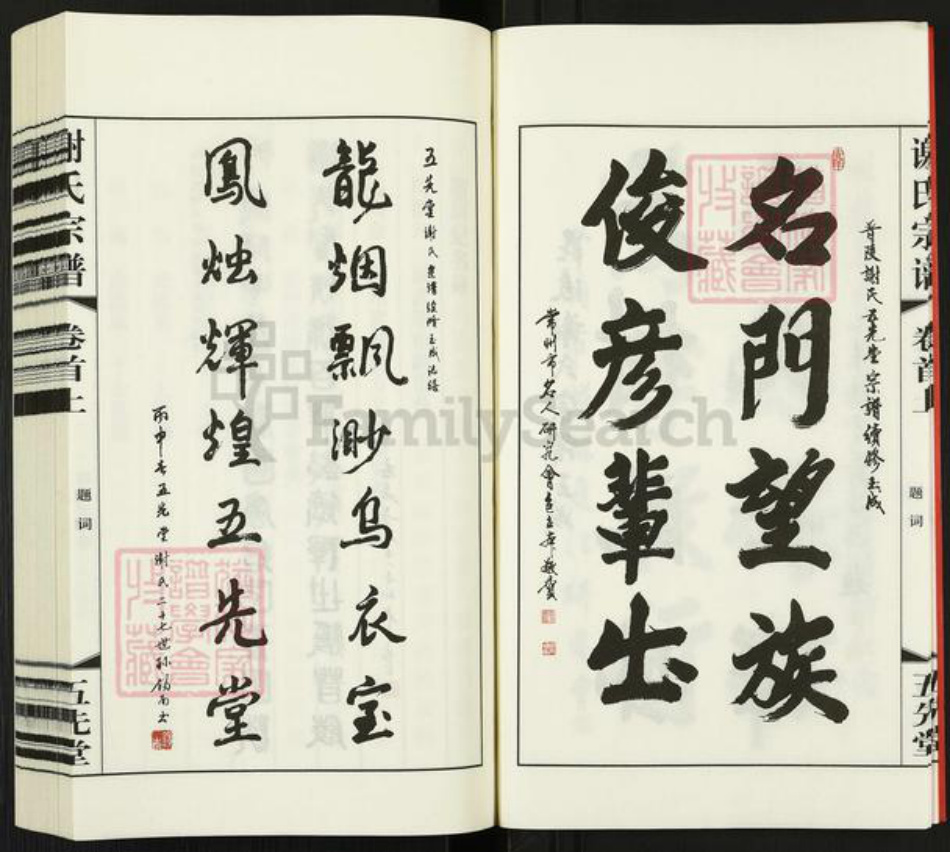 谢氏宗谱
卷首上
题词
五先堂
晋陵謝氏五先堂宗譜續修玉成
名門望族
俊彦輩出
常州市名人研究會
敬賀
五先堂謝氏宗譜續修玉成誌禧
龍烟飄渺烏衣宝
鳳烛輝煌五先堂
丙申春五先堂謝氏二十七世孙
谢氏宗谱
卷首上
题词
五先堂
FamilySearch